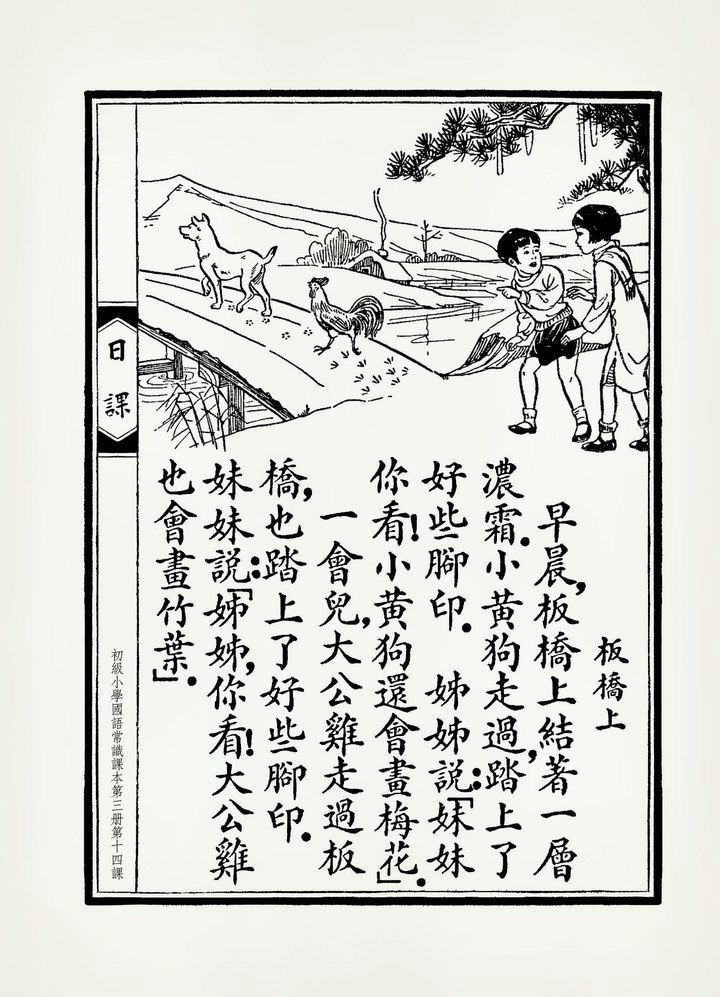 板橋上
早晨,板橋上結著一層
濃霜.小黃狗走過,踏上了
好些腳印.姊姊說:「妹妹
你看!小黃狗還會畫梅花」.
一會兒,大公雞走過板
橋,也踏上了好些腳印.
妹妹說:「姊姊,你看!大公雞
也會畫竹葉」.
日課
初級小學國語常識課本第三册第十四課